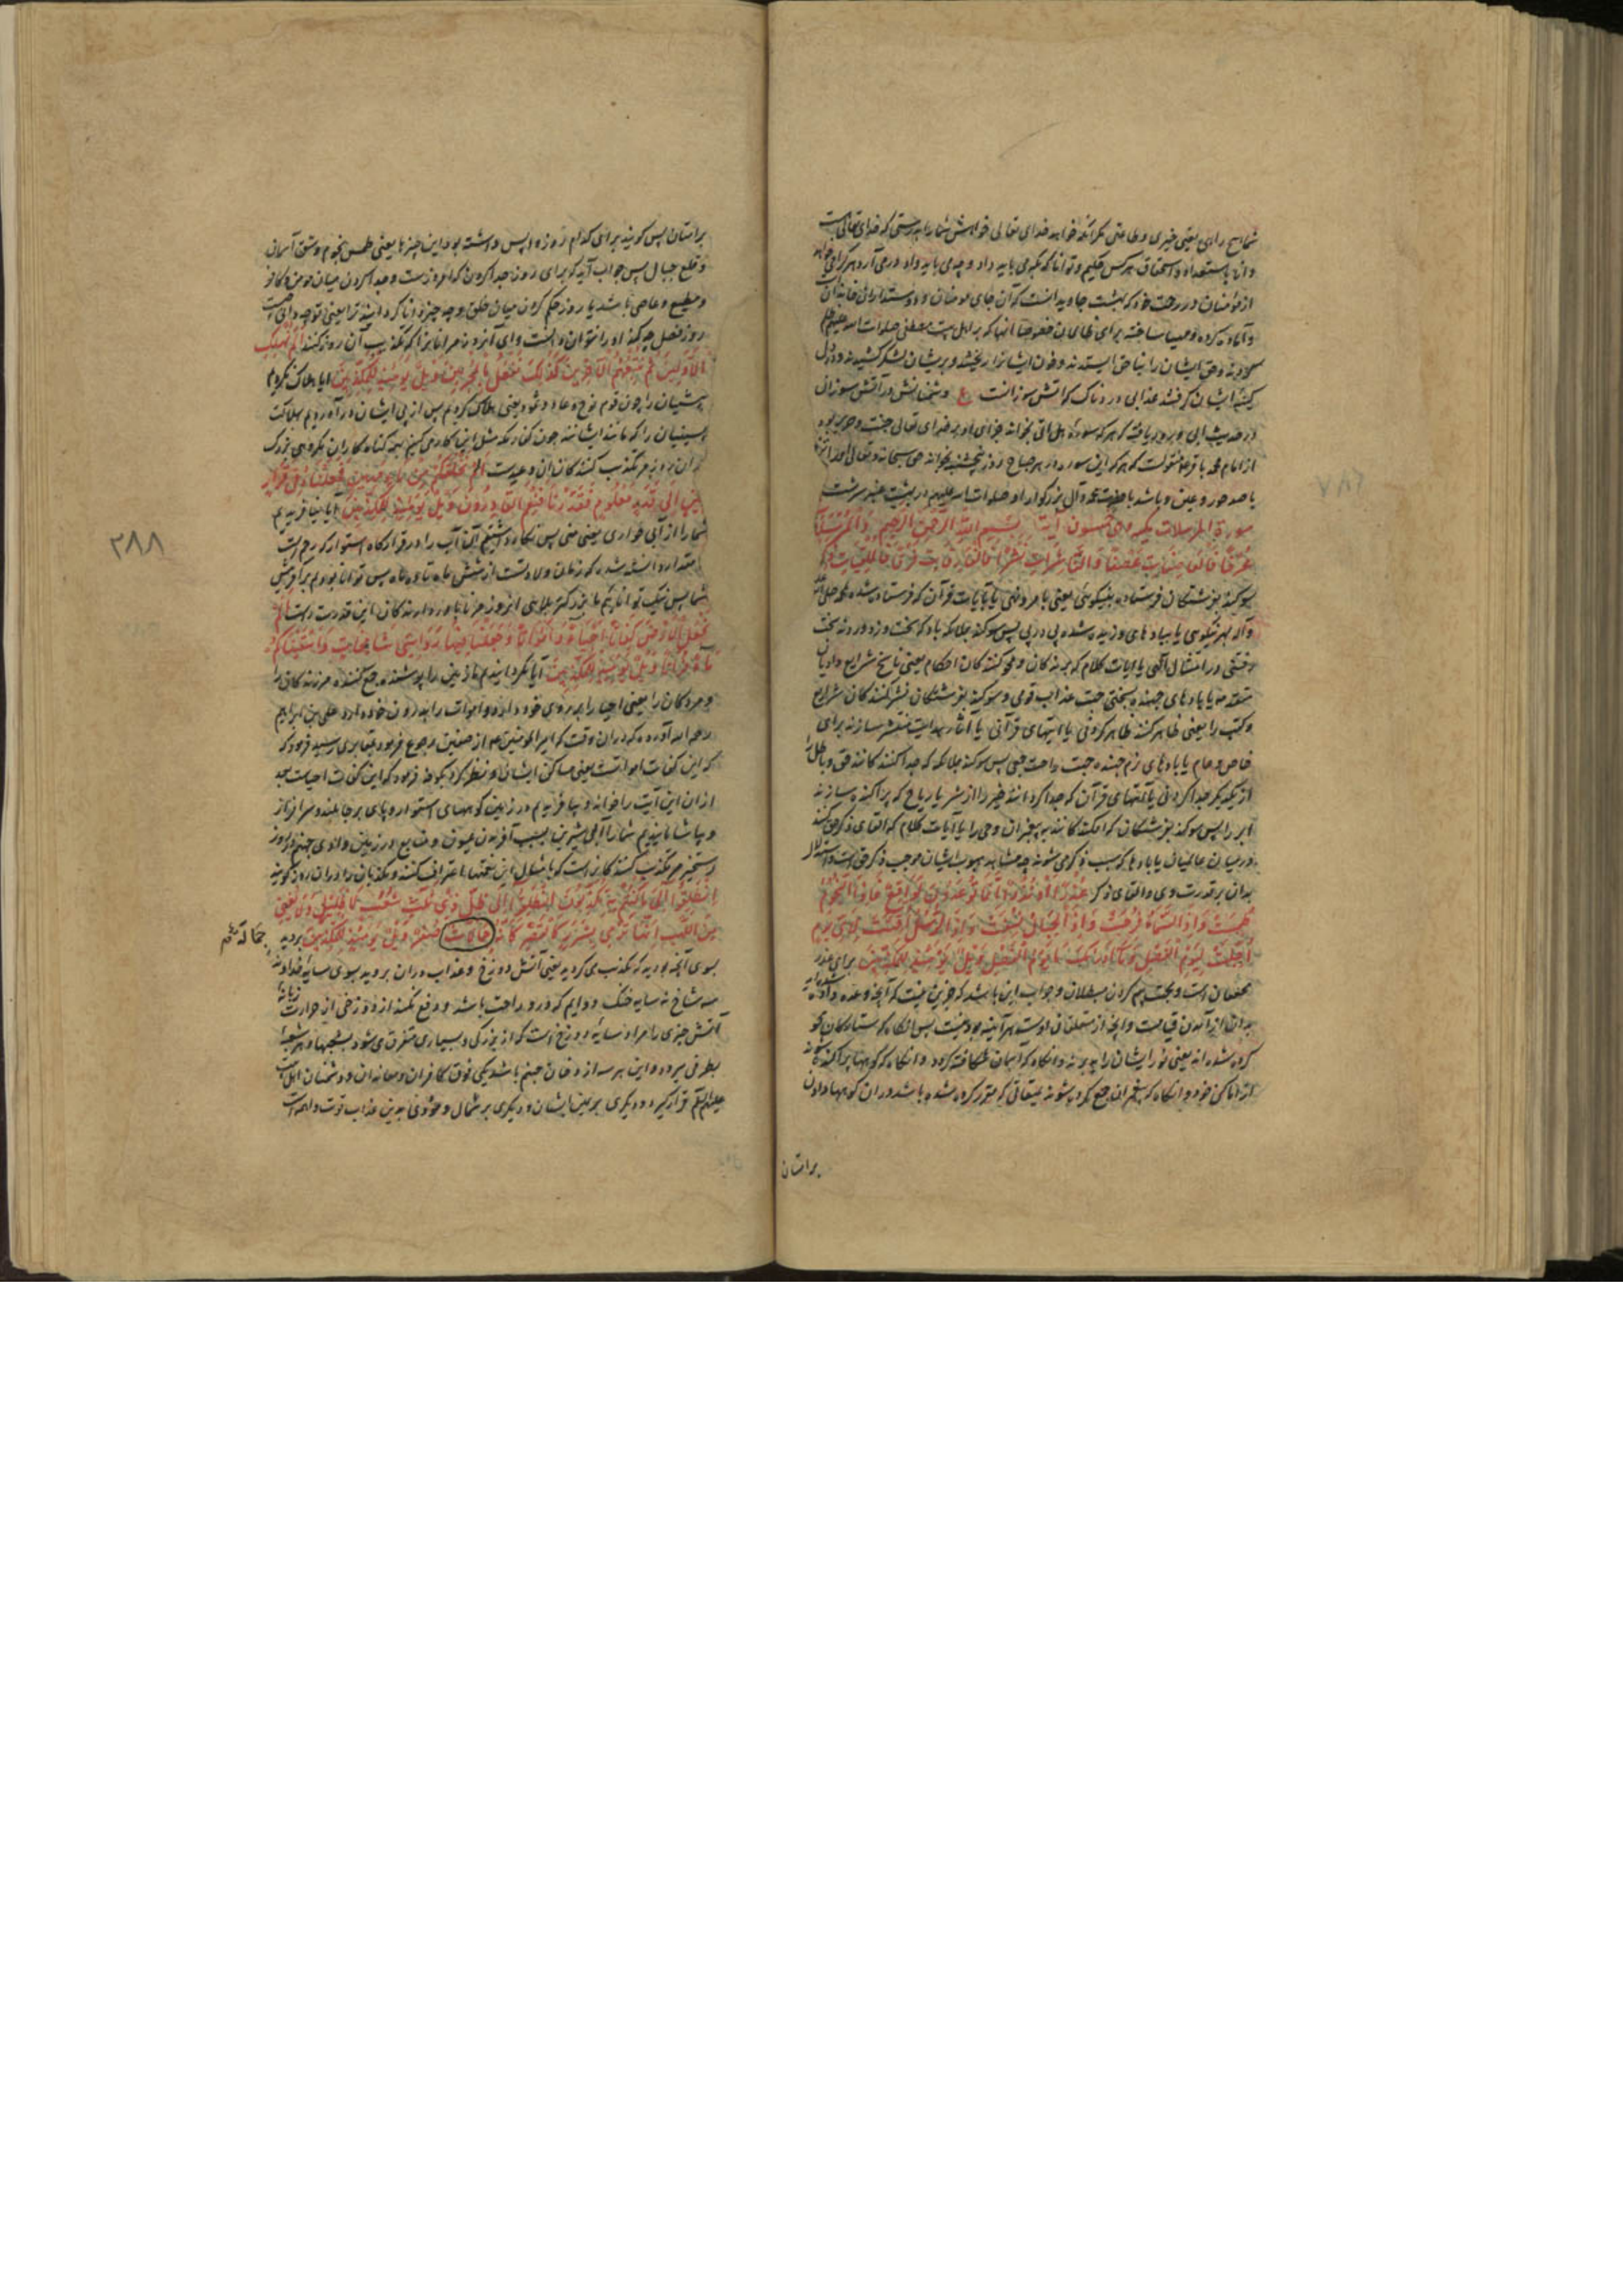 شما هیچ راهی یعنی خیری و طاعتی مگر آنکه خواهد خدای تعالی خواهش شما را بدرستی که خدای تعالی هست
دانا باستعداد و استحقاق هر کس حکیم و توانا که بکه می باید داد و چه می باید داد درمی آرد هر کرا می خواهد
از مؤمنان در رحمت خود که بهشت جاویدانست که آن جای مومنان و دوستداران خاندان
و آماده کرده و مهیا ساخته برای ظالمان خصوصا آنها که بر اهل بیت مصطفی صلوات الله علیهم ظلم
و حق ایشان را بناحق ستدند و خون ایشانرا ریختند و بر ایشان لشکر کشیدند و در دل
کینه ایشان گرفتند عذابی دردناک که آتش سوزانست و دشمنانش در آتش سوزان
در حدیث ابی و بریر یافته که هر که سوره هل اتی بخواند جزای او بر خدای تعالی جنت و حریر بود
از امام محمد باقر ع منقولست که هر که این سوره در هر صباح روز پنجشنبه بخواند حق سبحانه و تعالی
با صد حور و عین و باشد با حضرت محمد و آل بزرگوار او صلوات الله علیهم در بهشت عنبر سرشت
سورة المرسلات مکیه و هی خمسون آیة بسم الله الرحمن الرحیم وَالْمُرْسَلَاتِ
عُرْفًا فَالْعَاصِفَاتِ عَصْفًا وَالنَّاشِرَاتِ نَشْرًا فَالْفَارِقَاتِ فَرْقًا فَالْمُلْقِيَاتِ ذِكْرًا
سوگند بفرشتگان فرستاده بنیکوئی یعنی بامر و نهی یا بآیات قرآن که فرستاده شده بمحمد صلی الله
و آله بهر نیکوئی یا ببادهای وزیده شده پی در پی پس سوگند بملائکه باد که سخت وزد وزیدنی سخت
رفتنی در امتثال الهی یا آیات کلام که برنده کان و محو کننده کان احکام یعنی ناسخ شرایع و ادیان
متقدمه یا بادهای جهنده بسختی جهت عذاب قومی و سوگند بفرشتگان نشر کنندگان شرایع
و کتب را یعنی ظاهر کنند ظاهر کردنی یا آیتهای قرآنی یا آثار هدایت منتشر سازند برای
خاص و عام یا بادهای نرم جهنده جهت راحت جمعی پس سوگند بملائکه که جدا کنندکانند حق و باطل را
از یکدیگر جدا کردنی یا آیتهای قرآن که جدا کردانند خیر را از شر یا ریاح که پراکنده سازند
ابر را پس سوگند بفرشتگان که افکندکانند به پیغمبران وحی را یا آیات کلام که القای ذکر حق کنند
در میان عالمیان یا بادها که سبب ذکر می شوند چه مشاهده هبوب ایشان موجب ذکر حق است و استدلال
بدان بر قدرت وی و القای ذکر عُذْرًا أَوْ نُذْرًا إِنَّمَا تُوعَدُونَ لَوَاقِعٌ فَإِذَا النُّجُومُ
طُمِسَتْ وَإِذَا السَّمَاءُ فُرِجَتْ وَإِذَا الْجِبَالُ نُسِفَتْ وَإِذَا الرُّسُلُ أُقِّتَتْ لِأَيِّ يَوْمٍ
أُجِّلَتْ لِيَوْمِ الْفَصْلِ وَمَا أَدْرَاكَ مَا يَوْمُ الْفَصْلِ وَيْلٌ يَوْمَئِذٍ لِلْمُكَذِّبِينَ برای عذر
محقان است و بجهت بیم کردن مبطلان و جواب این باشد که جز این نیست که آنچه وعده داده شده اید
بدان از آمدن قیامت و آنچه از متعلقات اوست هر آینه بودنیست پس آنگاه که ستارگان محو
کرده شده اند یعنی نور ایشان را ببرند و آنگاه که آسمان شکافته گردد و آنگاه که کوهها پراکنده شوند
از اماکن خود و آنگاه که پیغمبران جمع کرده شوند بمیقاتی که مقرر کرده شده باشد در آن گواهیها دادن
بر امتان
بر امتان پس گویند برای کدام روز واپس داشته بود این چیزها یعنی طمس نجوم و شق آسمان
و قلع جبال پس جواب آید که برای روز جدا کردن که امروزست و جدا کردن میان مومن و کافر
و مطیع و عاصی باشد یا روز حکم کردن میان خلق و چه چیز دانا گردانید ترا یعنی تو چه دانی که چیست
روز فصل چه کنه او را نتوان دانست وای آنروز مر آنانرا که تکذیب آن روز کنند أَلَمْ نُهْلِكِ
الْأَوَّلِينَ ثُمَّ نُتْبِعُهُمُ الْآخِرِينَ كَذَلِكَ نَفْعَلُ بِالْمُجْرِمِينَ وَيْلٌ يَوْمَئِذٍ لِلْمُكَذِّبِينَ آیا هلاک نکردیم
پیشینیان را چون قوم نوح و عاد و ثمود یعنی هلاک کردیم پس از پی ایشان در آوردیم بهلاکت
پسینیان را که مانند ایشانند چون کفار مکه مثل این کار می کنیم بهمه گناه کاران مکروهی بزرگ
در آن روز مر تکذیب کنندگان آن وعیدست أَلَمْ نَخْلُقْكُمْ مِنْ مَاءٍ مَهِينٍ فَجَعَلْنَاهُ فِي قَرَارٍ
مَكِينٍ إِلَى قَدَرٍ مَعْلُومٍ فَقَدَرْنَا فَنِعْمَ الْقَادِرُونَ وَيْلٌ يَوْمَئِذٍ لِلْمُكَذِّبِينَ آیا نیافریدیم
شما را از آبی خواری یعنی منی پس نگاه داشتیم آن آب را در قرارگاه استوار که رحم است
مقدار دانسته شده که زمان ولادتست از شش ماه تا نه ماه پس توانا بودیم بر آفرینش
شما پس نیک تواناییم ما بزرگتر بلایی آنروز مر ناباور دارندگان باین قدرت راست أَلَمْ
نَجْعَلِ الْأَرْضَ كِفَاتًا أَحْيَاءً وَأَمْوَاتًا وَجَعَلْنَا فِيهَا رَوَاسِيَ شَامِخَاتٍ وَأَسْقَيْنَاكُمْ
مَاءً فُرَاتًا وَيْلٌ يَوْمَئِذٍ لِلْمُكَذِّبِينَ آیا نگردانیدیم ما زمین را پوشنده و جمع کننده مر زنده کان را
و مردکان را یعنی احیا را بر روی خود دارد و اموات را بدرون خود دارد علی بن ابراهیم
رحمه الله آورده که در آن وقت که امیر المومنین ع از صفین رجوع فرمود بمقابری رسید فرمود که
که این کفات امواتست یعنی مساکن ایشان و نظر کرد بکوفه فرمود که این کفات احیاست بعد
از آن این آیت را خواند و بیافریدیم در زمین کوههای استوار و پای بر جا بلند و سرافراز
و بیاشامانیدیم شما را آبی شیرین بسبب آفریدن عیون و منابع در زمین وادی جهنم در روز
رستخیز مر تکذیب کنندگان راست که بامثال این نعمتها اعتراف نکنند و مکذبان را در آن روز گویند
انْطَلِقُوا إِلَى مَا كُنْتُمْ بِهِ تُكَذِّبُونَ انْطَلِقُوا إِلَى ظِلٍّ ذِي ثَلَاثِ شُعَبٍ لَا ظَلِيلٍ وَلَا يُغْنِي
مِنَ اللَّهَبِ إِنَّهَا تَرْمِي بِشَرَرٍ كَالْقَصْرِ كَأَنَّهُ جِمَالَاتٌ صُفْرٌ وَيْلٌ يَوْمَئِذٍ لِلْمُكَذِّبِينَ بروید
بسوی آنچه بودید که تکذیب می کردید یعنی آتش دوزخ و عذاب در آن بروید بسوی سایه خداوند
سه شاخ نه سایه خنک و دایم که در و راحت باشد و دفع نکند از دوزخی از حرارت زبانه
آتش چیزی را مراد سایه دوزخ است که از بزرگی و بسیاری متفرق می شود بشعبها و هر شعبه
بطرفی میرود و این هر سه از دخان جهنم باشد یکی فوق کافران و معاندان و دشمنان اهل بیت
علیهم السلم قرار گیرد و دیگری بر یمین ایشان و دیگری بر شمال
۲۸۸